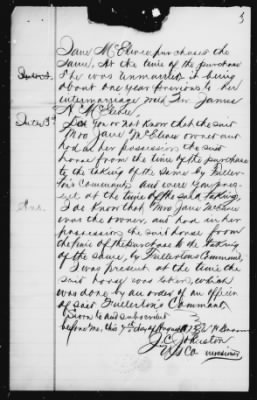 3
Jane McElwee purchased the
same, At the time of the purchase
She was unmarried it being
about one year previous to her
intermarriage with James
N. McGehee.
Inter 3d Do you or not know that the said
Mrs Jane McElwee owned and
had in her possession the said
horse from the time of the purchase
to the taking of the same by Fuller-
ton's Command, and were you pres-
ent at the time of the said taking,
Ans. I do know that Mrs Jane
was the owner, and had in her
possession the said horse from
the time of the purchase to the taking
of the same, by Fullerton's Command.
I was present at the time the
said horse was taken, which
was done by an order of an officer
of said Fullerton's Command.
Sworn to and subscribed
before me, this 7th day of August
J. C. Johnston